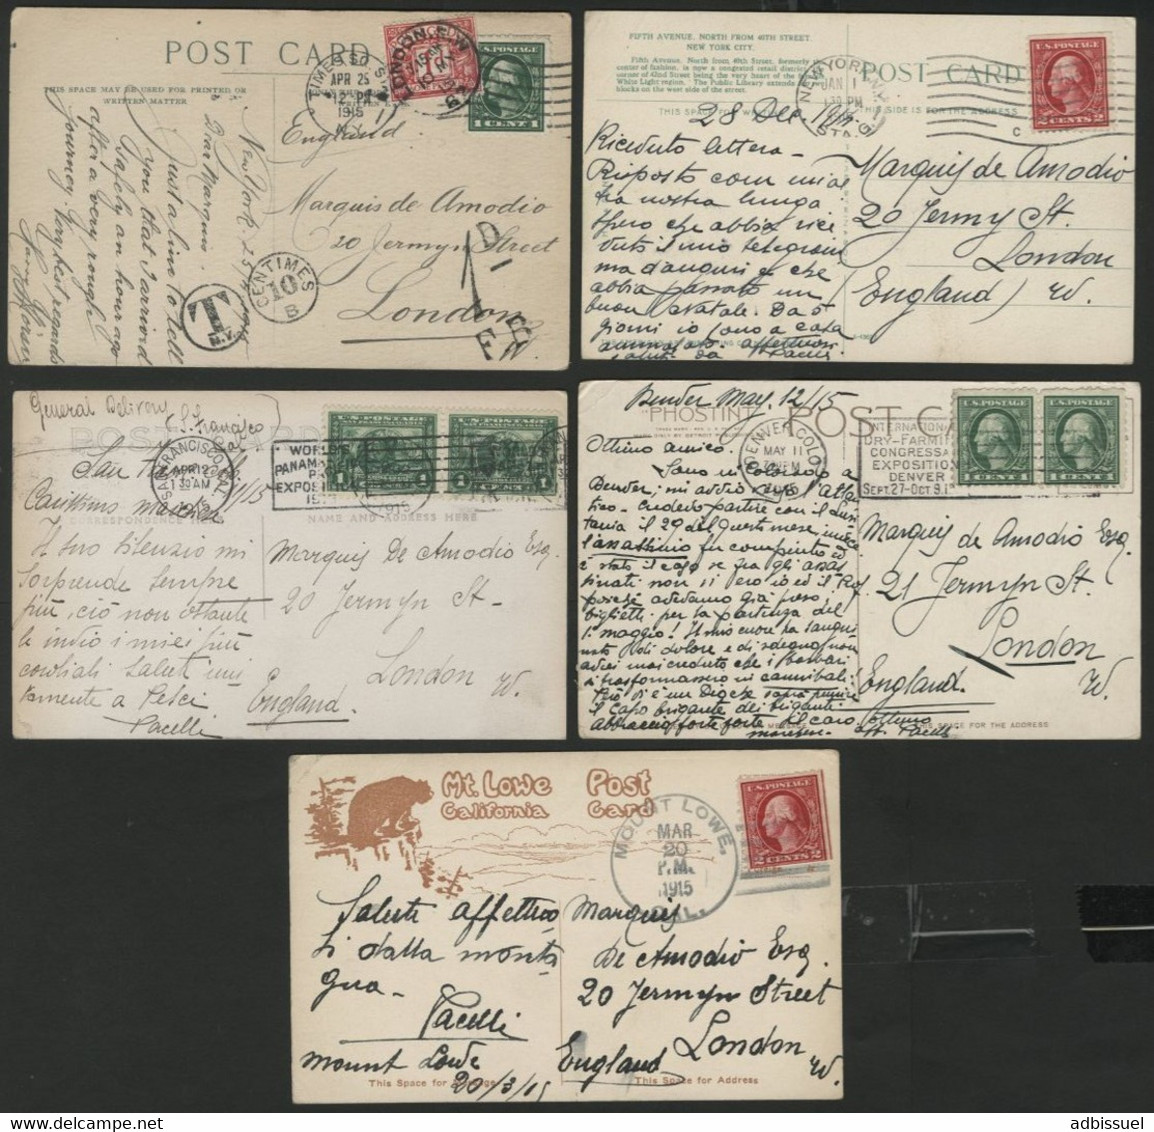 POST CARD
THIS SPACE MAY BE USED FOR PRINTED OR
WRITTEN MATTER
TIMES SQ.
APR 25
12 PM
1915
N.Y.
LONDON, E.W
U.S. POSTAGE
1 CENT 1
New York, 25
Dear Marquis.
Just a line to tell
you that I arrived
safely an hour ago
after a very rough
journey. Very best regards
England
Marquis de Amodio
20 Jermyn Street
London
T
CENTIMES
10
B
1D
FIFTH AVENUE, NORTH FROM 46TH STREET.
NEW YORK CITY.
Fifth Avenue, North from 40th Street, formerly
center of fashion, is now a congested retail district
corner of 42nd Street being the very heart of the
White Light region. The Public Library extends
blocks on the west side of the street.
POST CARD
THIS SPACE FOR
THIS SIDE IS FOR THE ADDRESS
NEW YORK, N.Y.
JAN 1
1 30 PM
STA. G
C
U.S. POSTAGE
2 CENTS 2
28 Dec.
Ricevuto lettera -
Risposto con mia
la nostra lunga
spero che abbia rice
vuto il mio telegram
ma d'auguri e che
abbia passato un
buon Natale. Da
giorni io sono a casa
saluti da Pacelli
Marquis de Amodio
20 Jermyn St.
London
(England) W.
General Delivery
S. Francisco
Cal
POST CARD
SAN FRANCISCO, CAL.
APR 12
1 30 AM
1915
WORLD'S
PANAMA
EXPOSITION
1915
U.S. POSTAGE
1 CENT 1
CORRESPONDENCE HERE
NAME AND ADDRESS HERE
San
Carissimo
Il suo silenzio mi
sorprende sempre
più, ciò non ostante
le invio i miei più
cordiali saluti uni
tamente a Pesci
Pacelli
Marquis De Amodio Esq.
20 Jermyn St -
London
England. W.
Denver May, 12/15
PHOSTINT
POST CARD
DENVER, COLO.
MAY 11
1915
INTERNATIONAL
DRY-FARMING
CONGRESS &
EXPOSITION
DENVER
SEPT. 27-OCT 9, 15
U.S. POSTAGE
1 CENT 1
Ottimo amico.
Sono in Colorado a
Denver; mi avvio verso l'atlan
tico - credevo partire con il Lusi
tania il 29 del questo mese, invece
l'assassinio fu compiuto ed
è stato il caso se fra gli assas
sinati non vi ero io ed il
avevamo già presi
biglietti per la partenza del
1. maggio! Il mio cuore ha sangui
nato di dolore e di sdegno, non
avrei mai creduto che i barbari
si trasformassero in cannibali.
Ciò vi è un Dio che saprà punire
il capo brigante dei briganti
abbraccio forte forte
Pacelli
Marquis de Amodio Esq.
21 Jermyn St.
London
England. W.
SPACE FOR THE ADDRESS
Mt. Lowe
California
Post
Card
MOUNT LOWE,
MAR
20
P.M.
1915
CAL.
U.S. POSTAGE
2 CENTS 2
Saluti affettuo
si dalla monta
gna -
Pacelli
Mount Lowe
20/3/15
Marquis
De Amodio Esq.
20 Jermyn Street
London
England W.
This Space for Message
This Space for Address
www.delcampe.net
adbissuel